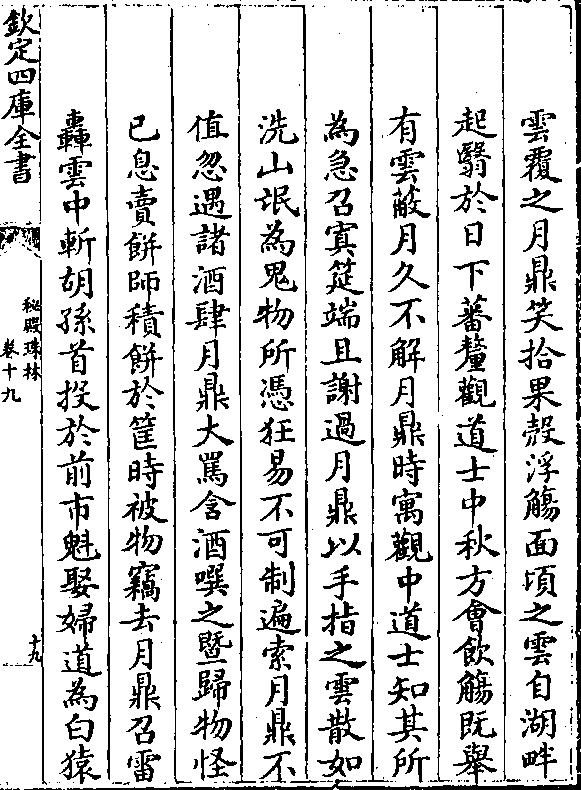 雲覆之月鼎笑拾果殻浮觴面頃之雲自湖畔
起翳於日下蕃釐觀道士中秋方會飲觴既舉
有雲蔽月久不解月鼎時寓觀中道士知其所
為急召寘筵端且謝過月鼎以手指之雲散如
洗山氓為鬼物所憑狂易不可制遍索月鼎不
值忽遇諸酒肆月鼎大罵含酒噀之暨歸物怪
已息賣餅師積餅於筐時被物竊去月鼎召雷
轟雲中斬胡孫首投於前市魁娶婦道為白猿
欽定四庫全書
秘殿珠林
卷十九
十九